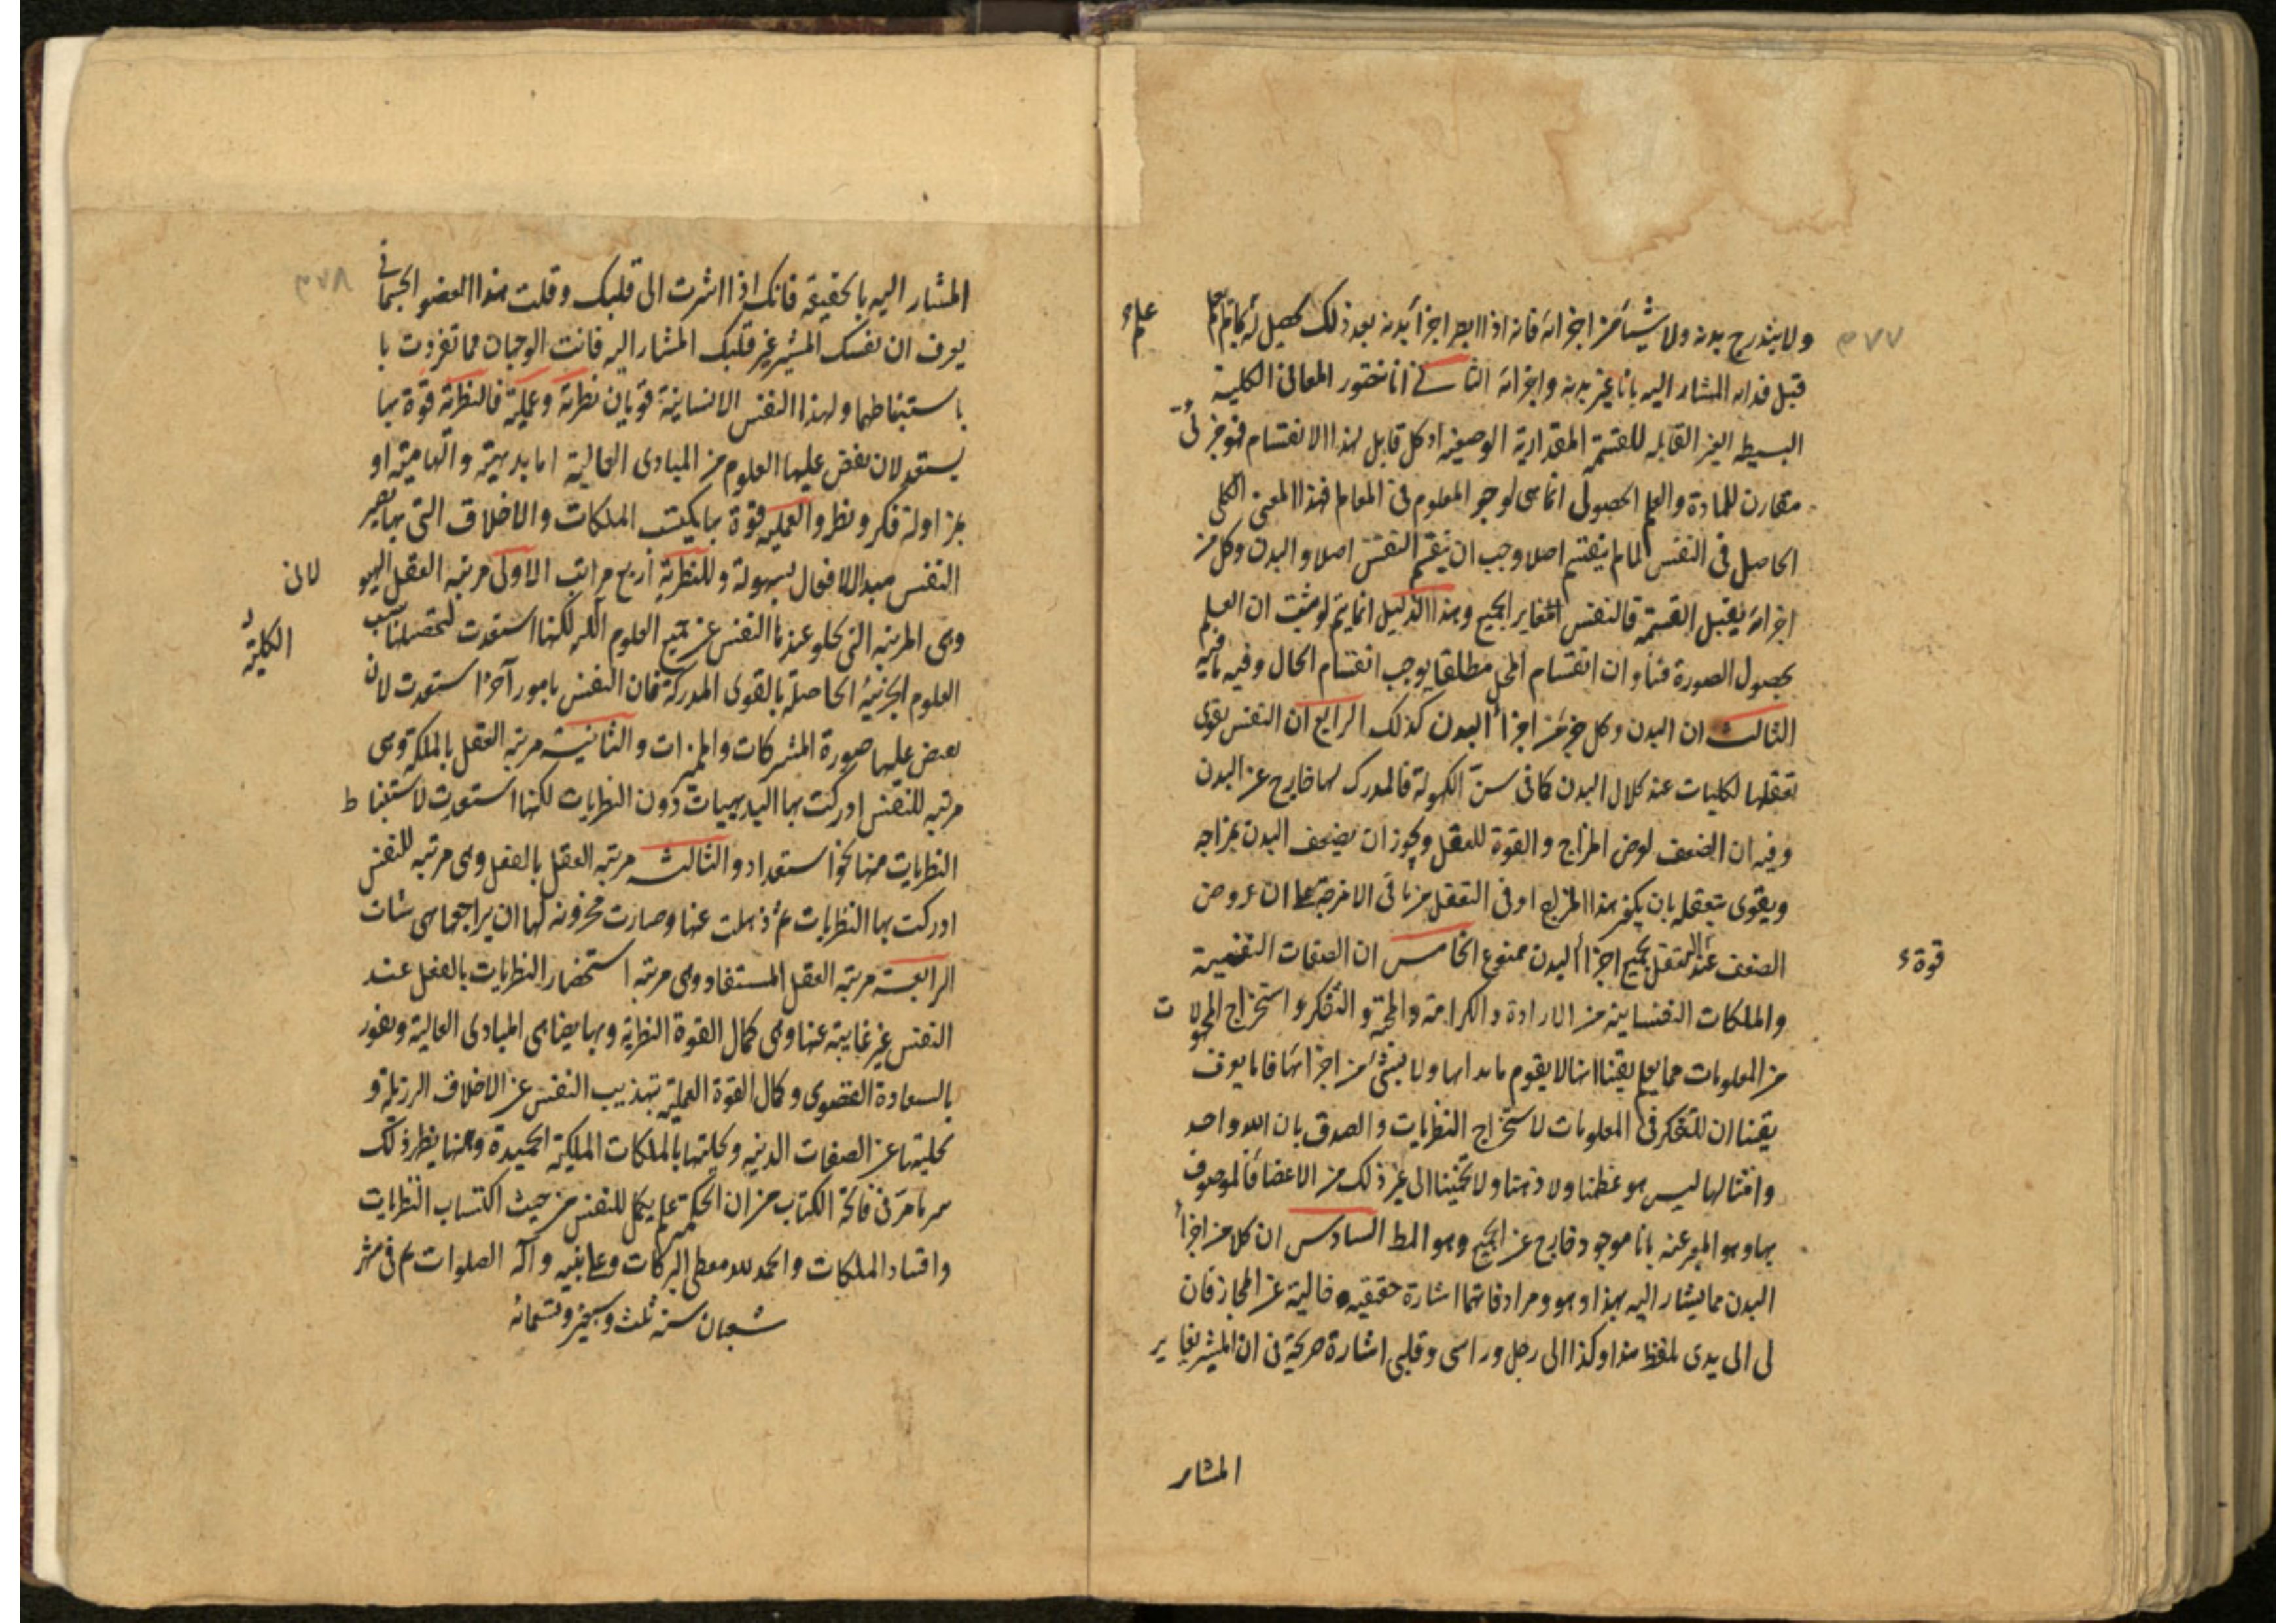 ولا يندرج بدنه ولا شيئا من اجزائه فانه اذا ابصر اجزاء بدنه بعد ذلك يحصل له
علم
قبل فذاته المشار اليه بانا غير بدنه واجزائه الثانى انا نتصور المعانى الكلية
البسيطه الغير القابله للقسمة المقدارية الوضعية اذ كل قابل لهذا الانقسام فهو جزئى
مقارن للمادة والعلم الحصولى انما هى لوجود المعلوم فى العالم فهذا المعنى الكلى
الحاصل فى النفس لما لم ينقسم اصلا وجب ان ينقسم النفس اصلا والبدن وكل من
اجزائه يقبل القسمة فالنفس المغاير الجميع وهذا الدليل انما يتم لو ثبت ان العلم
بحصول الصورة فينا وان انقسام المحل مطلقا يوجب انقسام الحال وفيه ما فيه
الثالث ان البدن وكل جزء من اجزاء البدن كذلك الرابع ان النفس يقوى
تعقلها لكليات عند كلال البدن كما فى سن الكهولة فالمدرك لها خارج عن البدن
وفيه ان الضعف لعرض المزاج والقوة للعقل ويجوز ان يضعف البدن بمزاجه
ويقوى بتعقله بان يكون هذا المزاج اوفى التعقل من باقى الامزجة على ان عروض
الضعف عند التعقل بجميع اجزاء البدن ممنوع الخامس ان الصفات النفسية
قوة
والملكات النفسانية من الارادة والكراهة والمحبة والتفكر واستخراج المجهولات
من المعلومات مما يعلم يقينا انها لا يقوم بابدانها ولا بشئ من اجزائها فانا يعرف
يقينا ان للتفكر فى المعلومات لاستخراج النظريات والصدق بان الله واحد
وامثالها ليس هو عظمنا ولا ذهننا ولا الى غير ذلك من الاعضا فالموصوف
بها وهو المعبر عنه بانا موجود خارج عن الجميع وهو المط السادس ان كلا من اجزاء
البدن مما يشار اليه بهذا وهو ومرادفاتهما اشارة حقيقيه خالية عن المجاز فان
لى الى يدى بلفظ هذا وكذا الى رجل وراسى وقلبى اشارة صريحة فى ان المشير يغاير
المشار
المشار اليه بالحقيقة فانك اذا اشرت الى قلبك وقلت هذا العضو الجسمانى
يعرف ان نفسك المشير غير قلبك المشار اليه فانت الوجهان مما تفردت با
باستنباطهما ولهذا النفس الانسانية قوتان نظرية وعملية فالنظرية قوة بها
يستعد لان يفض عليها العلوم من المبادى العالية اما بديهية والهامية او
بمزاولة فكر ونظر والعملية قوة بها يكتسب الملكات والاخلاق التى بها يصير
النفس مبدا لافعال بسهولة وللنظرية اربع مراتب الاولى مرتبة العقل الهيو
لانى
وهى المرتبة التى يخلو عندها النفس عن جميع العلوم لكنها استعدت لتحصيلها بسبب
الكلية
العلوم الجزئية الحاصلة بالقوى المدركة فان النفس بامور آخر استعدت لان
يفض عليها صورة المشتركات والمميزات والثانية مرتبة العقل بالملكة وهى
مرتبه للنفس ادركت بها البديهيات دون النظريات لكنها استعدت لاستنباط
النظريات منها نحو استعداد والثالث مرتبة العقل بالفعل وهى مرتبه للنفس
ادركت بها النظريات ثم ذهلت عنها وصارت مخزونه لها ان يراجعها متى شات
الرابعة مرتبة العقل المستفاد وهى مرتبة استحضار النظريات بالفعل عند
النفس غير غايبة عنها وهى كمال القوة النظرية وبها يضاهى المبادى العالية ويفوز
بالسعادة القصوى وكمال القوة العملية بتهذيب النفس عن الاخلاق الرزيلة و
تخليتها عن الصفات الدنيه وتحليتها بالملكات الملكية الحميدة وههنا ينظر ذلك
سر ما مر فى فاتحة الكتاب من ان الحكمة علم يكمل للنفس من حيث اكتساب النظريات
واقتناء الملكات والحمد لله معطى البركات وعلى نبيه وآله الصلوات تم فى شهر
شعبان سنة ثلث وسبعين وتسعمائه